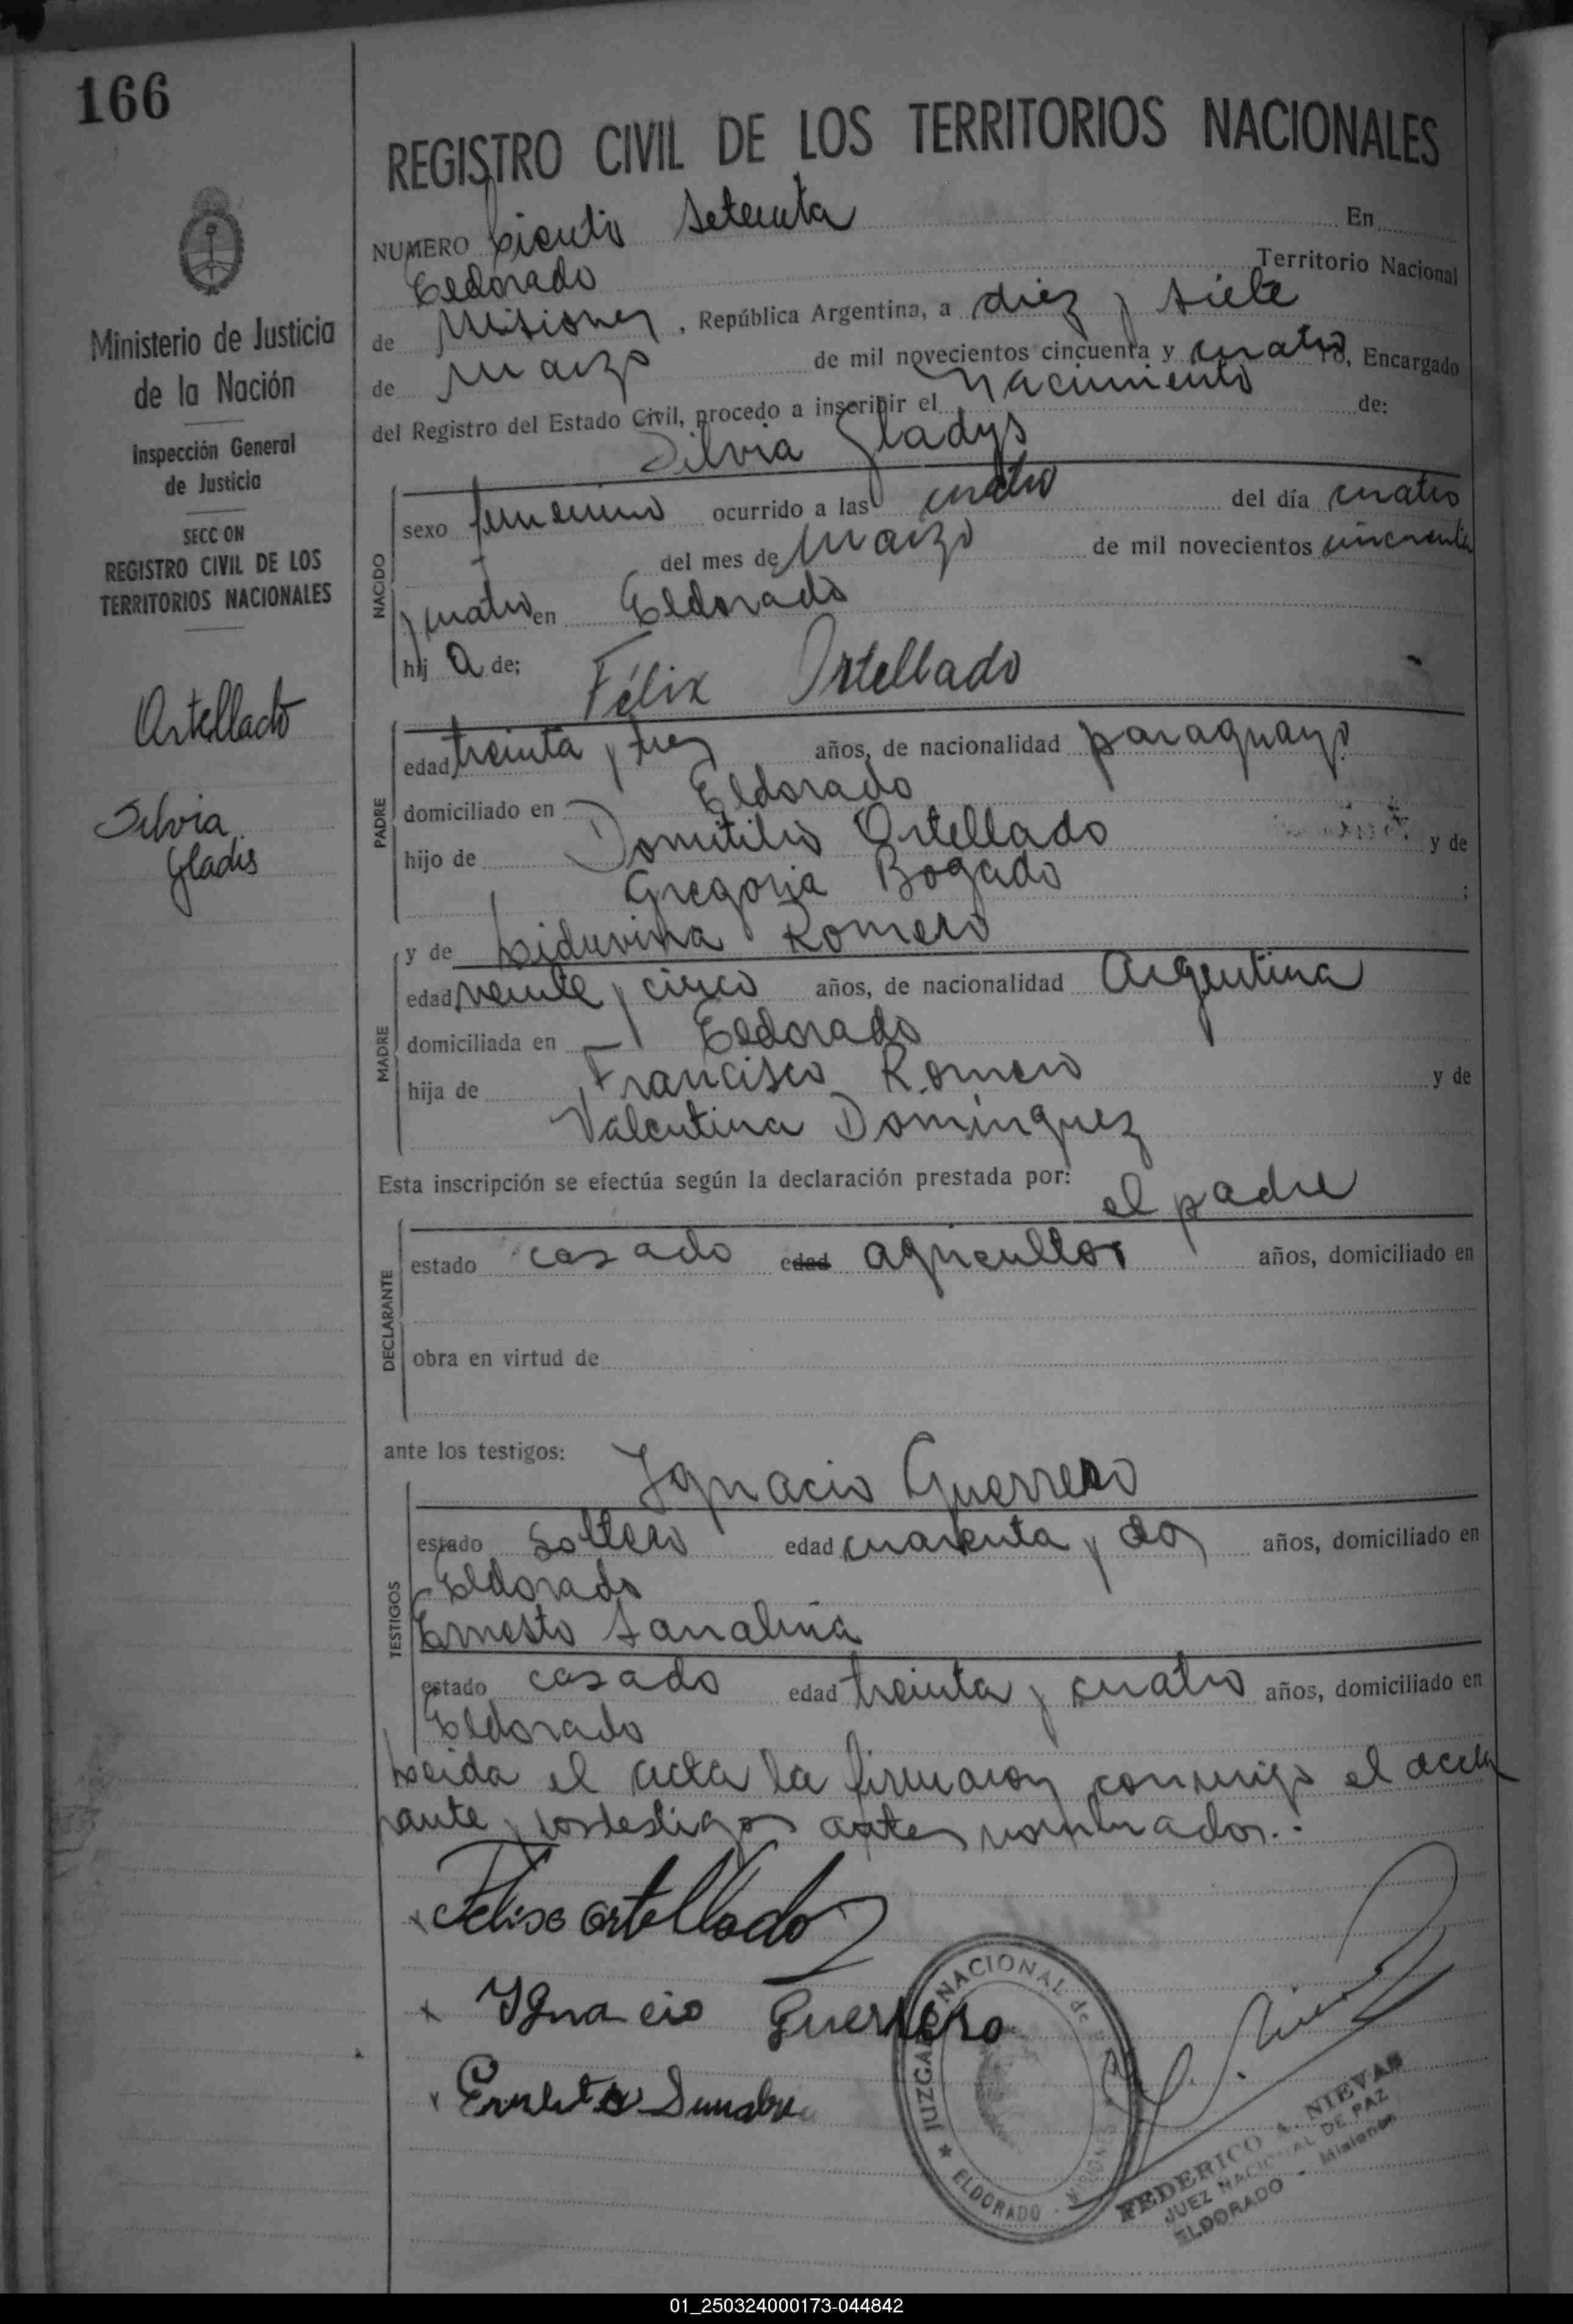 166
REGISTRO CIVIL DE LOS TERRITORIOS NACIONALES
Ministerio de Justicia
de la Nación
Inspección General
de Justicia
SECC ON
REGISTRO CIVIL DE LOS
TERRITORIOS NACIONALES
Ortellado
Silvia
Gladis
NUMERO Ciento Setenta En
Eldorado Territorio Nacional
de Misiones, República Argentina, a diez y siete
de Marzo de mil novecientos cincuenta y cuatro, Encargado
del Registro del Estado Civil, procedo a inscribir el Nacimiento de:
Silvia Gladys
NACIDO
sexo femenino ocurrido a las cuatro del día cuatro
del mes de Marzo de mil novecientos cincuenta
y cuatro en Eldorado
hij a de;
Félix Ortellado
PADRE
edad treinta y tres años, de nacionalidad paraguayo
domiciliado en Eldorado
hijo de Domitilio Ortellado y de
Gregoria Bogado ;
y de Liduvina Romero
MADRE
edad veinte y cinco años, de nacionalidad Argentina
domiciliada en Eldorado
hija de Francisco Romero y de
Valentina Domínguez
Esta inscripción se efectúa según la declaración prestada por: el padre
DECLARANTE
estado casado edad agricultor años, domiciliado en
obra en virtud de
ante los testigos: Ignacio Guerrero
TESTIGOS
estado soltero edad cuarenta y dos años, domiciliado en
Eldorado
Ernesto
estado casado edad treinta y cuatro años, domiciliado en
Eldorado
Leida el acta la firmaron conmigo el decla
rante y los testigos antes nombrados.
Ortellado
x Ygnacio Guerrero
x Ernesto
JUZGADO NACIONAL de PAZ
★ ELDORADO - MISIONES
FEDERICO A. NIEVAS
JUEZ NACIONAL DE PAZ
ELDORADO - Misiones
01_250324000173-044842